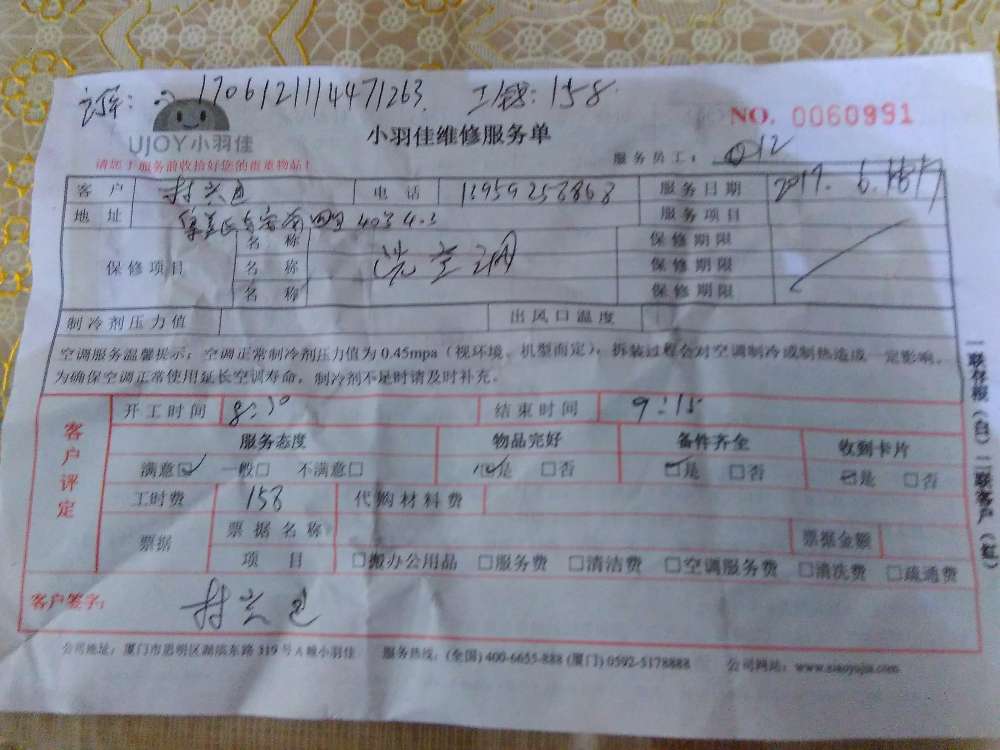 17061211114471263 工钱:158
UJOY小羽佳
小羽佳维修服务单
NO. 0060991
请您于服务前收拾好您的贵重物品!
服务员工: 012
客户 电话 服务日期 2017. 6.
地址 服务项目
保修项目 名称 洗空调 保修期限
名称 保修期限
名称 保修期限
制冷剂压力值 出风口温度
空调服务温馨提示:空调正常制冷剂压力值为0.45mpa(视环境、机型而定),拆装过程会对空调制冷或制热造成一定影响,
为确保空调正常使用延长空调寿命,制冷剂不足时请及时补充。
客户评定
开工时间 8:30 结束时间 9:15
服务态度 物品完好 备件齐全 收到卡片
满意☑ 一般□ 不满意□ ☑是 □否 ☑是 □否 ☑是 □否
工时费 158 代购材料费
票据 票据名称 票据金额
项目 □搬办公用品 □服务费 □清洁费 □空调服务费 □清洗费 □疏通费
客户签字:
公司地址:厦门市思明区湖滨东路319号A幢小羽佳 服务热线:(全国)400-6655-888 (厦门)0592-5178888 公司网站:www.xiaoyujia.com
一联存根(白)二联客户(红)